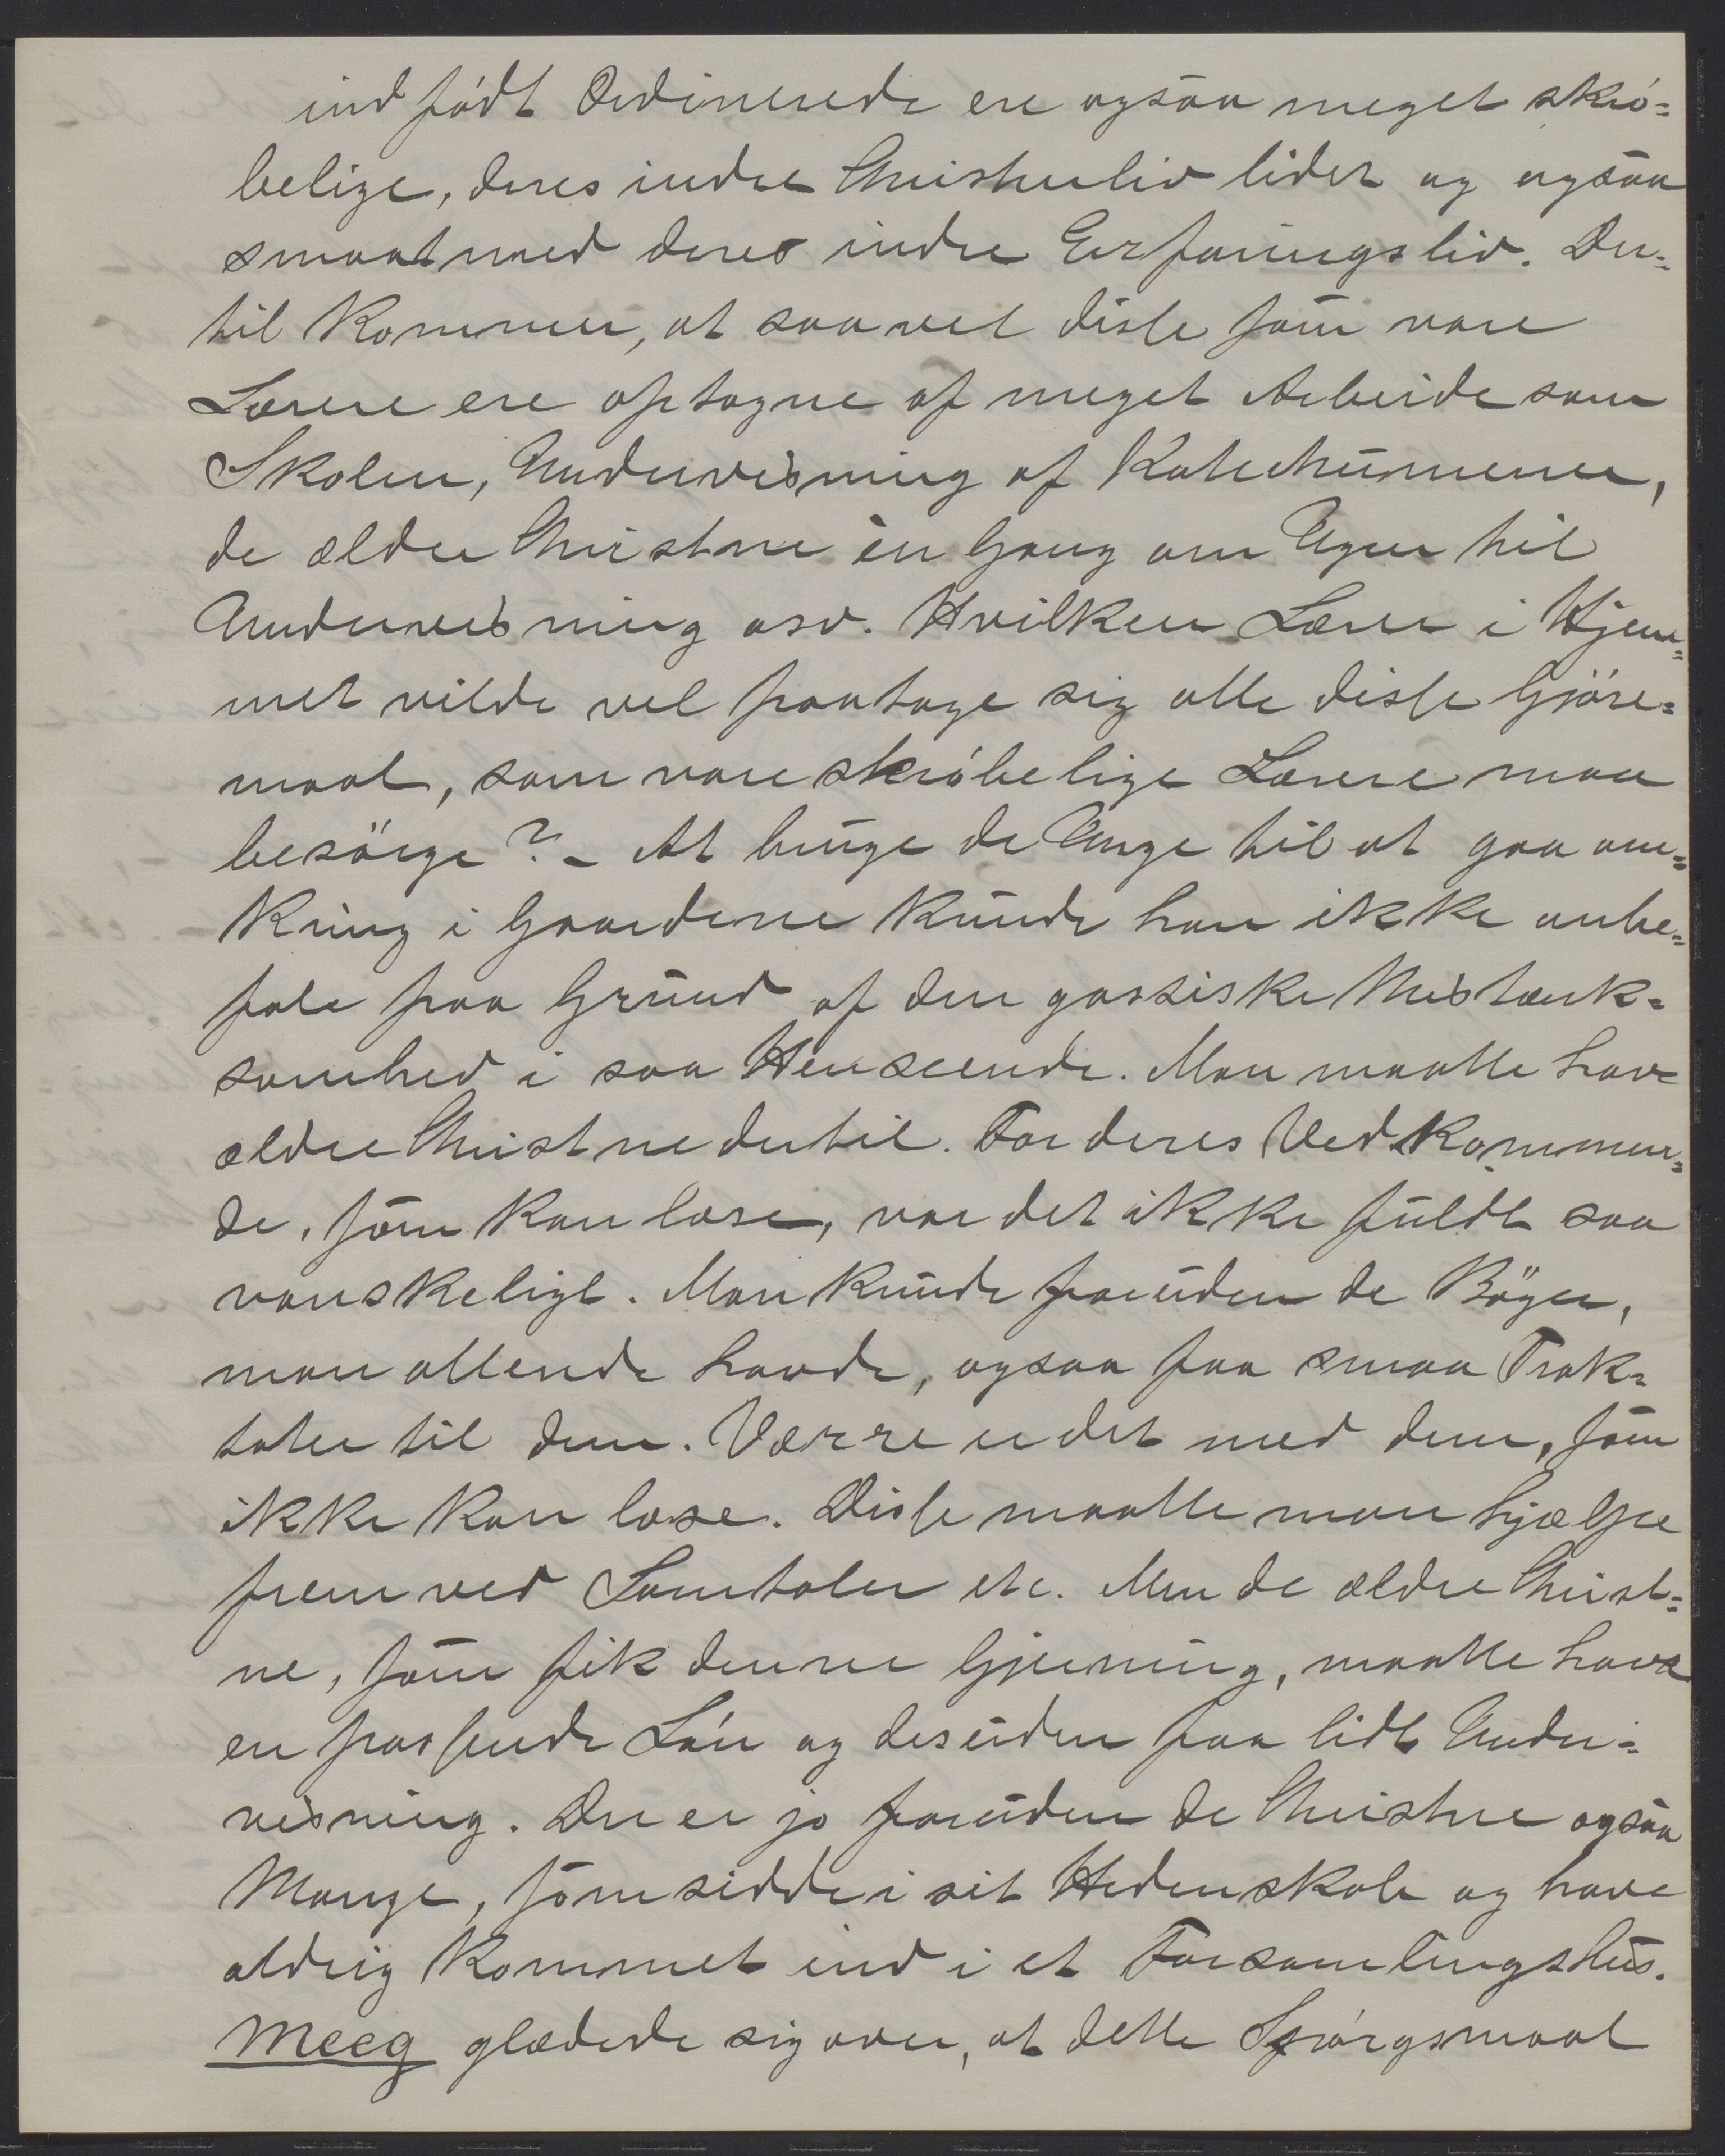 indfødt Ordinerede ere ogsaa meget skrö=
belige, deres indre Christenliv lidet og ogsaa
smaat med deres indre Erfaringsliv. Der=
til Kommer, at saavel disse som vore
Lærere ere optagne af meget Arbeide som
Skolen, Undervisning af Katechumener,
de ældre Christne èn Gang om Ugen til
Undervisning osv. Hvilken Lærer i Hjem=
met vilde vel paatage sig alle disse Gjöre=
maal, som vore skröbelige Lærere maa
besörge? – At bruge de Unge til at gaa om=
Kring i Gaardene Kunde han ikke anbe=
fale paa Grund af den gassiske Mistænk=
somhed i saa Henseende. Man maatte have
ældre Christne dertil. For deres Vedkommen=
de, som Kan læse, var det ikke fuldt saa
vanskeligt. Man Kunde foruden de Böger,
man allerede havde, ogsaa faa smaa Trak=
tater til dem. Værre er det med dem, som
ikke Kan læse. Disse maatte man hjælpe
frem ved Samtaler etc. Men de ældre Christ=
ne, som fik denne Gjerning, maatte have
en passende Lön og desuden faa lidt Under=
visning. Der er jo foruden de Christne ogsaa
Mange, som sidde i sit Hedenskab og have
aldrig Kommet ind i et Forsamlingshus.
Meeg glædede sig over, at dette Spörgsmaal